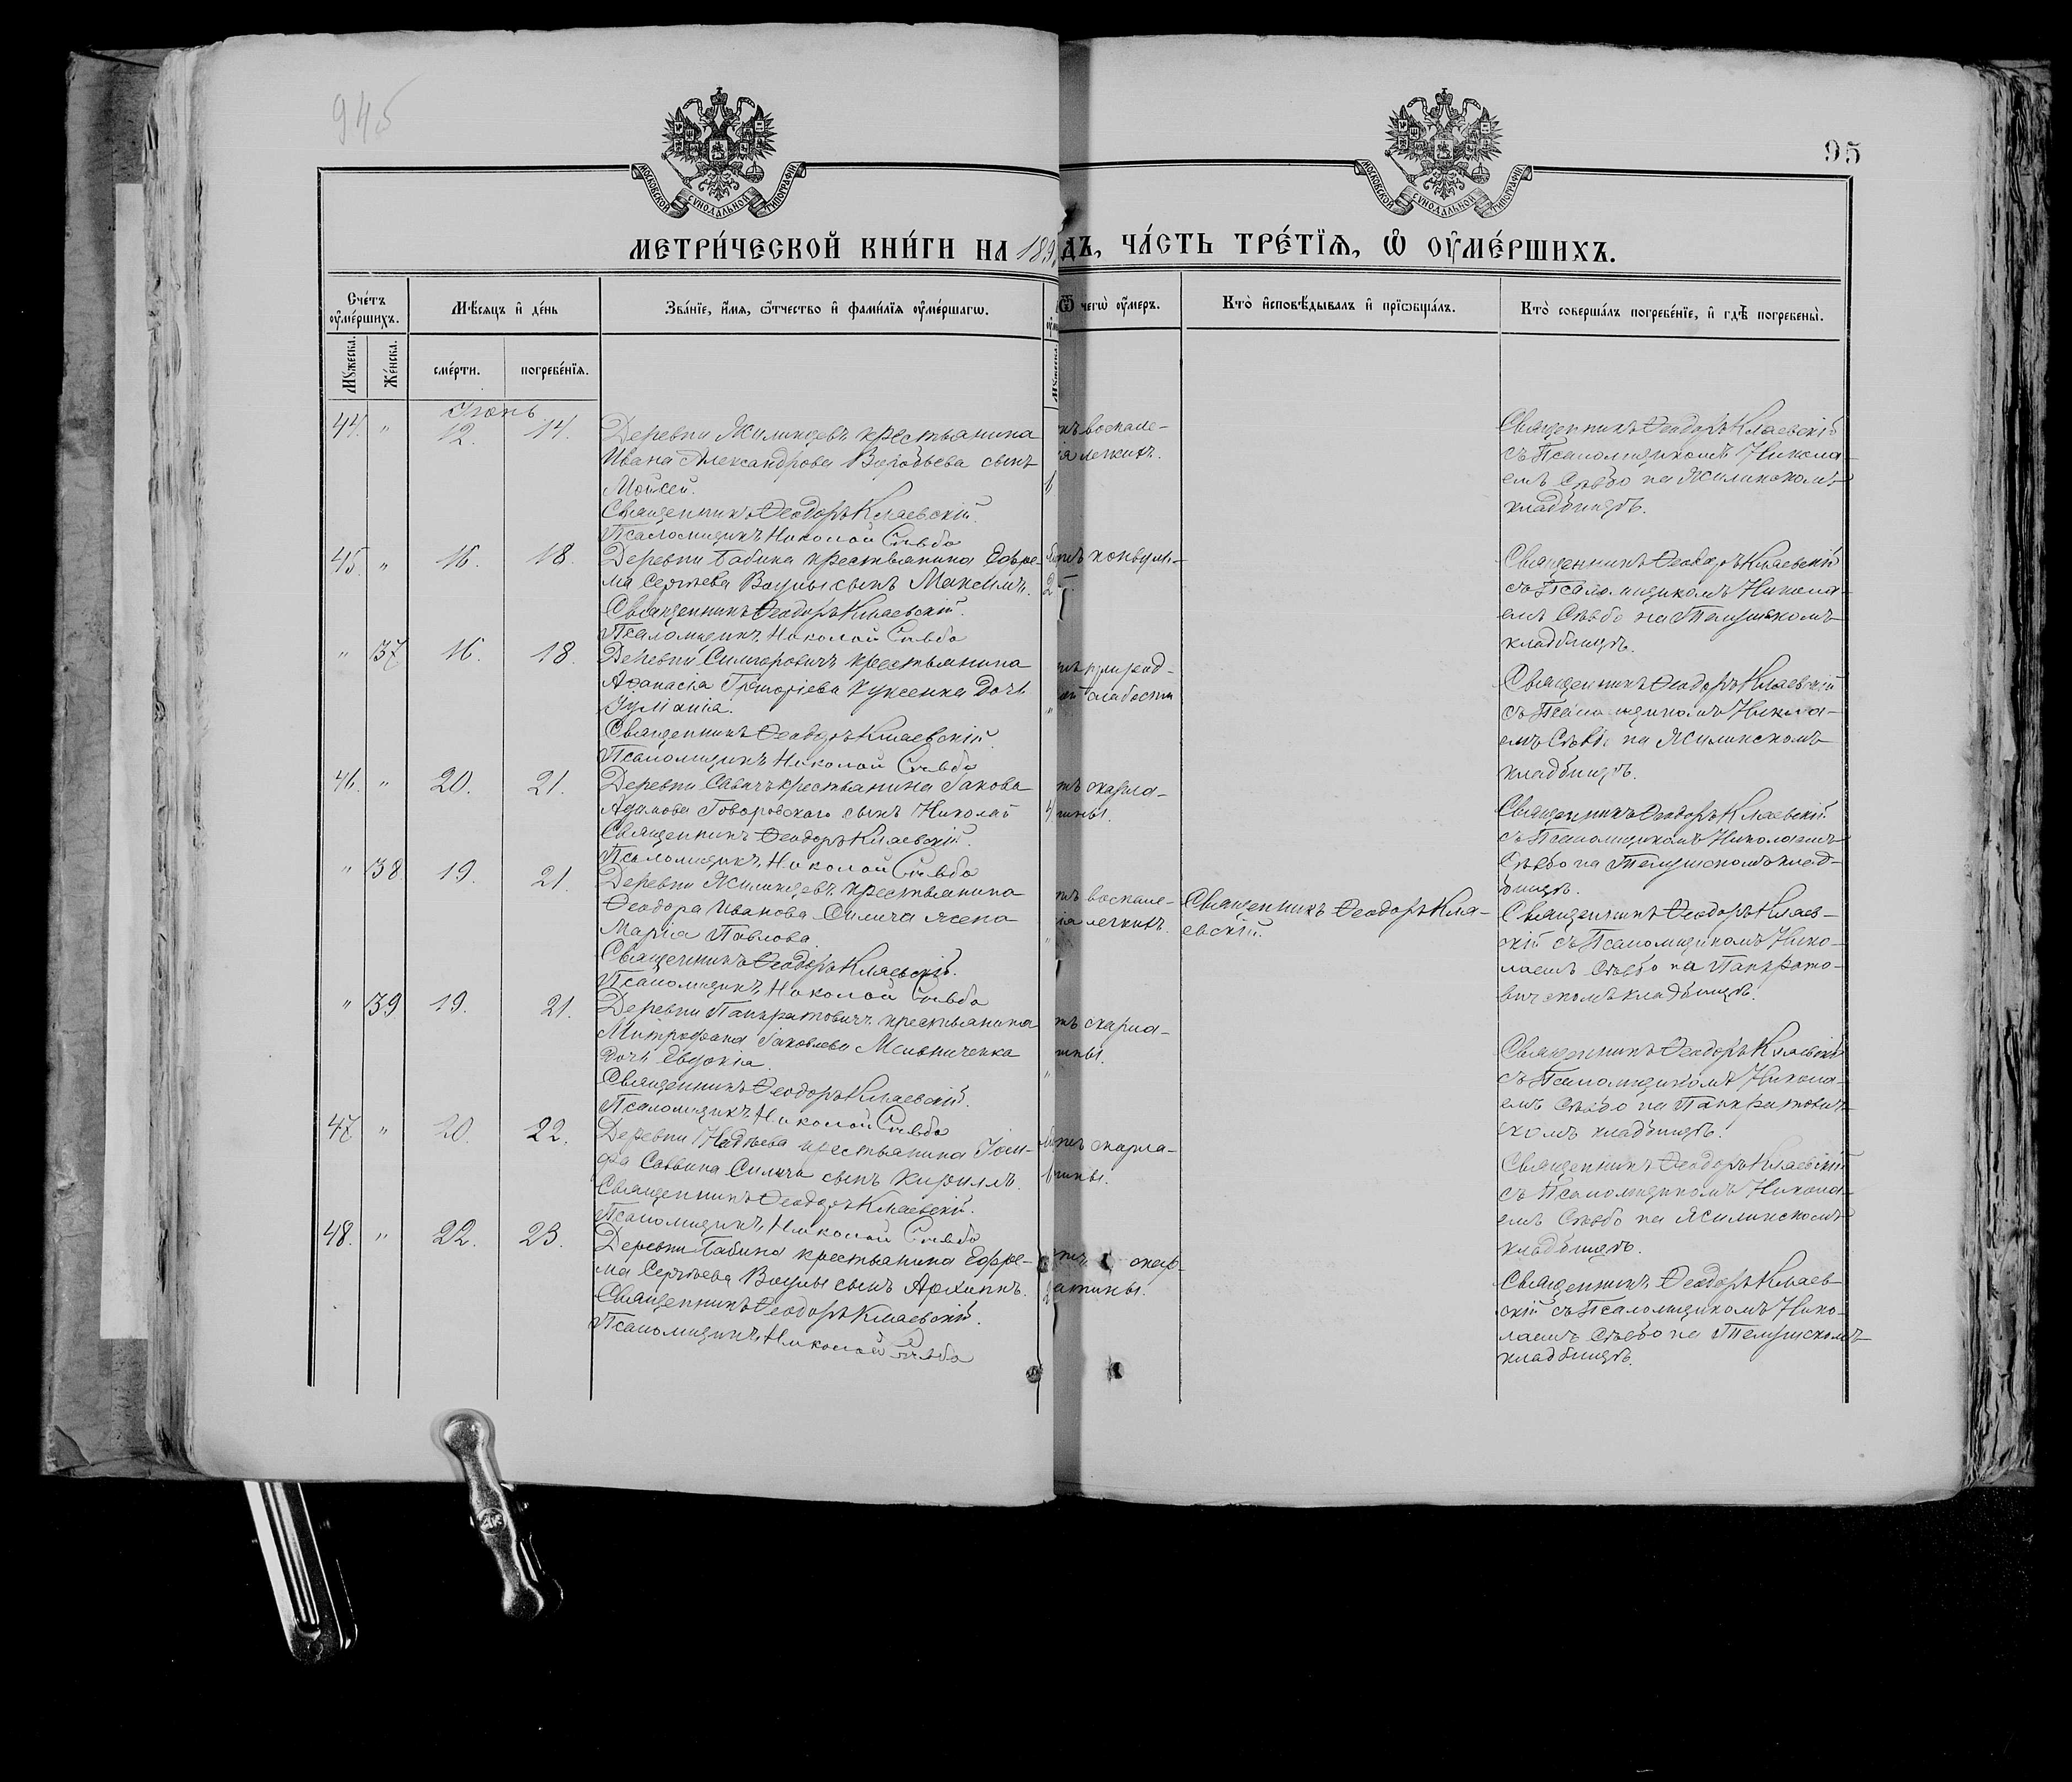 945
95
МОСКОВСКОЙ СѴНОДАЛЬНОЙ ТИПОГРАФІИ
МОСКОВСКОЙ СѴНОДАЛЬНОЙ ТИПОГРАФІИ
МЕТРИ́ЧЕСКОЙ КНИ́ГИ НА 189
ДЪ, ЧА́СТЬ ТРЕ́ТЇѦ, Ѡ҆ ОУ҆МЕ́РШИХЪ.
Сче́тъ оу҆ме́ршихъ.
Мꙋ́жеска.
Же́нска.
Мѣ́сяцъ и҆ де́нь
сме́рти.
погребе́нїѧ.
Зва́нїе, и҆́мѧ, ѻ҆́тчество и҆ фами́лїѧ оу҆ме́ршагѡ.
Мꙋ́жеска
Ѿ чегѡ̀ оу҆́меръ.
Кто̀ и҆сповѣ́дывалъ и҆ прїѡбща́лъ.
Кто̀ соверша́лъ погребе́нїе, и҆ гдѣ̀ погребены̀.
Іюнь
44. " 12. 14.
Деревни Жилинцевъ крестьянина
Ивана Александрова Воробьева сынъ
Мойсей.
Священникъ Ѳеодоръ Кляевскій.
Псаломщикъ Николай Сѣвбо
воспале-
ія легкихъ.
Священникъ Ѳеодоръ Кляевскій
съ Псаломщикомъ Никола-
емъ Сѣвбо на Жилинскомъ
кладбищѣ.
45. " 16. 18.
Деревни Бабина крестьянина Ефре-
ма Сергѣева сынъ Максимъ.
Священникъ Ѳеодоръ Кляевскій.
Псаломщикъ Николай Сѣвбо
2
Священникъ Ѳеодоръ Кляевскій
съ Псаломщикомъ Никола-
емъ Сѣвбо на
кладбищѣ.
" 37 16. 18.
Деревни крестьянина
Аѳанасія Григоріева дочь
Іуліанія.
Священникъ Ѳеодоръ Кляевскій.
Псаломщикъ Николай Сѣвбо
слабости
Священникъ Ѳеодоръ Кляевскій
съ Псаломщикомъ Никола-
емъ Сѣвбо на Жилинскомъ
кладбищѣ.
46. " 20. 21.
Деревни Савичъ крестьянина Іакова
Адамова Говоровскаго сынъ Николай
Священникъ Ѳеодоръ Кляевскій.
Псаломщикъ Николай Сѣвбо
4
скарла-
тины.
Священникъ Ѳеодоръ Кляевскій
съ Псаломщикомъ Николаемъ
Сѣвбо на клад-
бищѣ.
" 38 19. 21.
Деревни Жилинцевъ крестьянина
Ѳеодора Иванова Силича жена
Марія Павлова.
Священникъ Ѳеодоръ Кляевскій.
Псаломщикъ Николай Сѣвбо
воспале-
ія легкихъ.
Священникъ Ѳеодоръ Кля-
евскій.
Священникъ Ѳеодоръ Кляев-
скій съ Псаломщикомъ Нико-
лаемъ Сѣвбо на Панкрато-
вичскомъ кладбищѣ.
" 39 19. 21.
Деревни Панкратовичъ крестьянина
Митрофана Іаковлева Мельниченка
дочь Евдокія.
Священникъ Ѳеодоръ Кляевскій.
Псаломщикъ Николай Сѣвбо
скарла-
тины.
Священникъ Ѳеодоръ Кляевскій
съ Псаломщикомъ Никола-
емъ Сѣвбо на Панкратович-
скомъ кладбищѣ.
47 " 20. 22.
Деревни крестьянина Іоси-
фа Саввина Силича сынъ Кириллъ.
Священникъ Ѳеодоръ Кляевскій.
Псаломщикъ Николай Сѣвбо
скарла-
тины.
Священникъ Ѳеодоръ Кляевскій
съ Псаломщикомъ Никола-
емъ Сѣвбо на Жилинскомъ
кладбищѣ.
48. " 22. 23.
Деревни Бабина крестьянина Ефре-
ма Сергѣева сынъ Архиппъ.
Священникъ Ѳеодоръ Кляевскій.
Псаломщикъ Николай Сѣвбо
скар-
латины.
Священникъ Ѳеодоръ Кляев-
скій съ Псаломщикомъ Нико-
лаемъ Сѣвбо на
кладбищѣ.